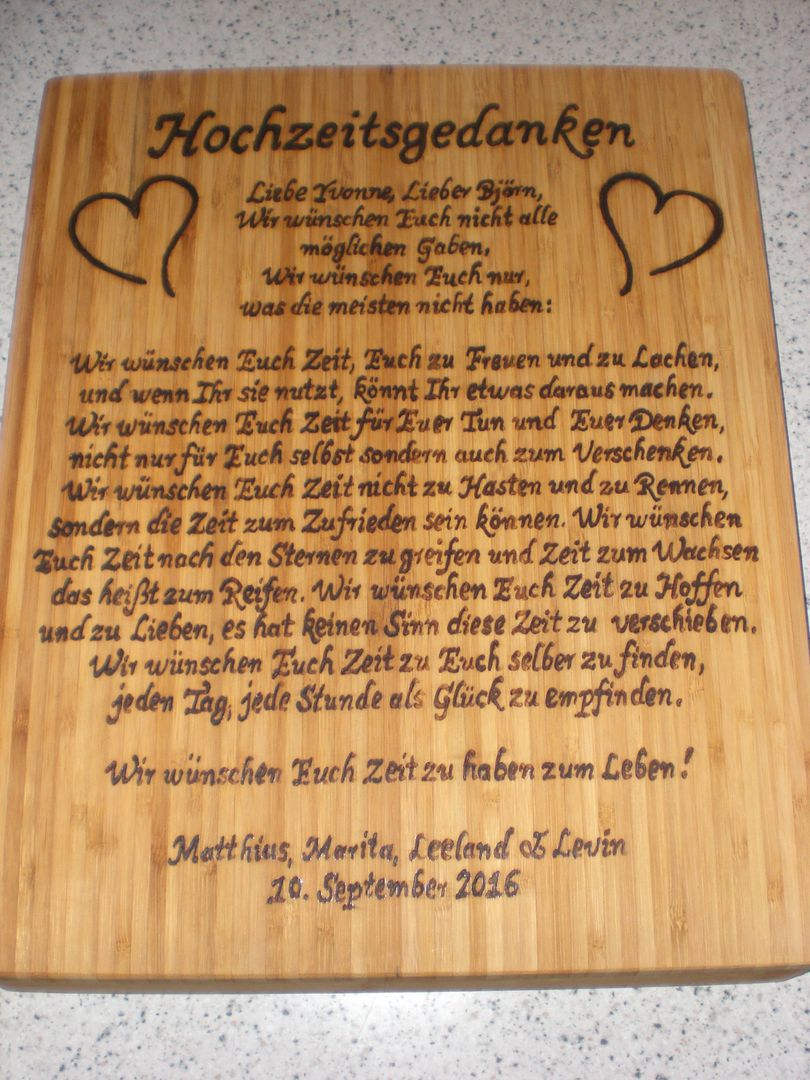 Hochzeitsgedanken
Liebe Yvonne, Lieber Björn,
Wir wünschen Euch nicht alle
möglichen Gaben,
Wir wünschen Euch nur,
was die meisten nicht haben:
Wir wünschen Euch Zeit, Euch zu Freuen und zu Lachen,
und wenn Ihr sie nutzt, könnt Ihr etwas daraus machen.
Wir wünschen Euch Zeit für Euer Tun und Euer Denken,
nicht nur für Euch selbst sondern auch zum Verschenken.
Wir wünschen Euch Zeit nicht zu Hasten und zu Rennen,
sondern die Zeit zum Zufrieden sein können. Wir wünschen
Euch Zeit nach den Sternen zu greifen und Zeit zum Wachsen
das heißt zum Reifen. Wir wünschen Euch Zeit zu Hoffen
und zu Lieben, es hat keinen Sinn diese Zeit zu verschieben.
Wir wünschen Euch Zeit zu Euch selber zu finden,
jeden Tag, jede Stunde als Glück zu empfinden.
Wir wünschen Euch Zeit zu haben zum Leben!
Matthius, Marita, Leeland & Levin
10. September 2016